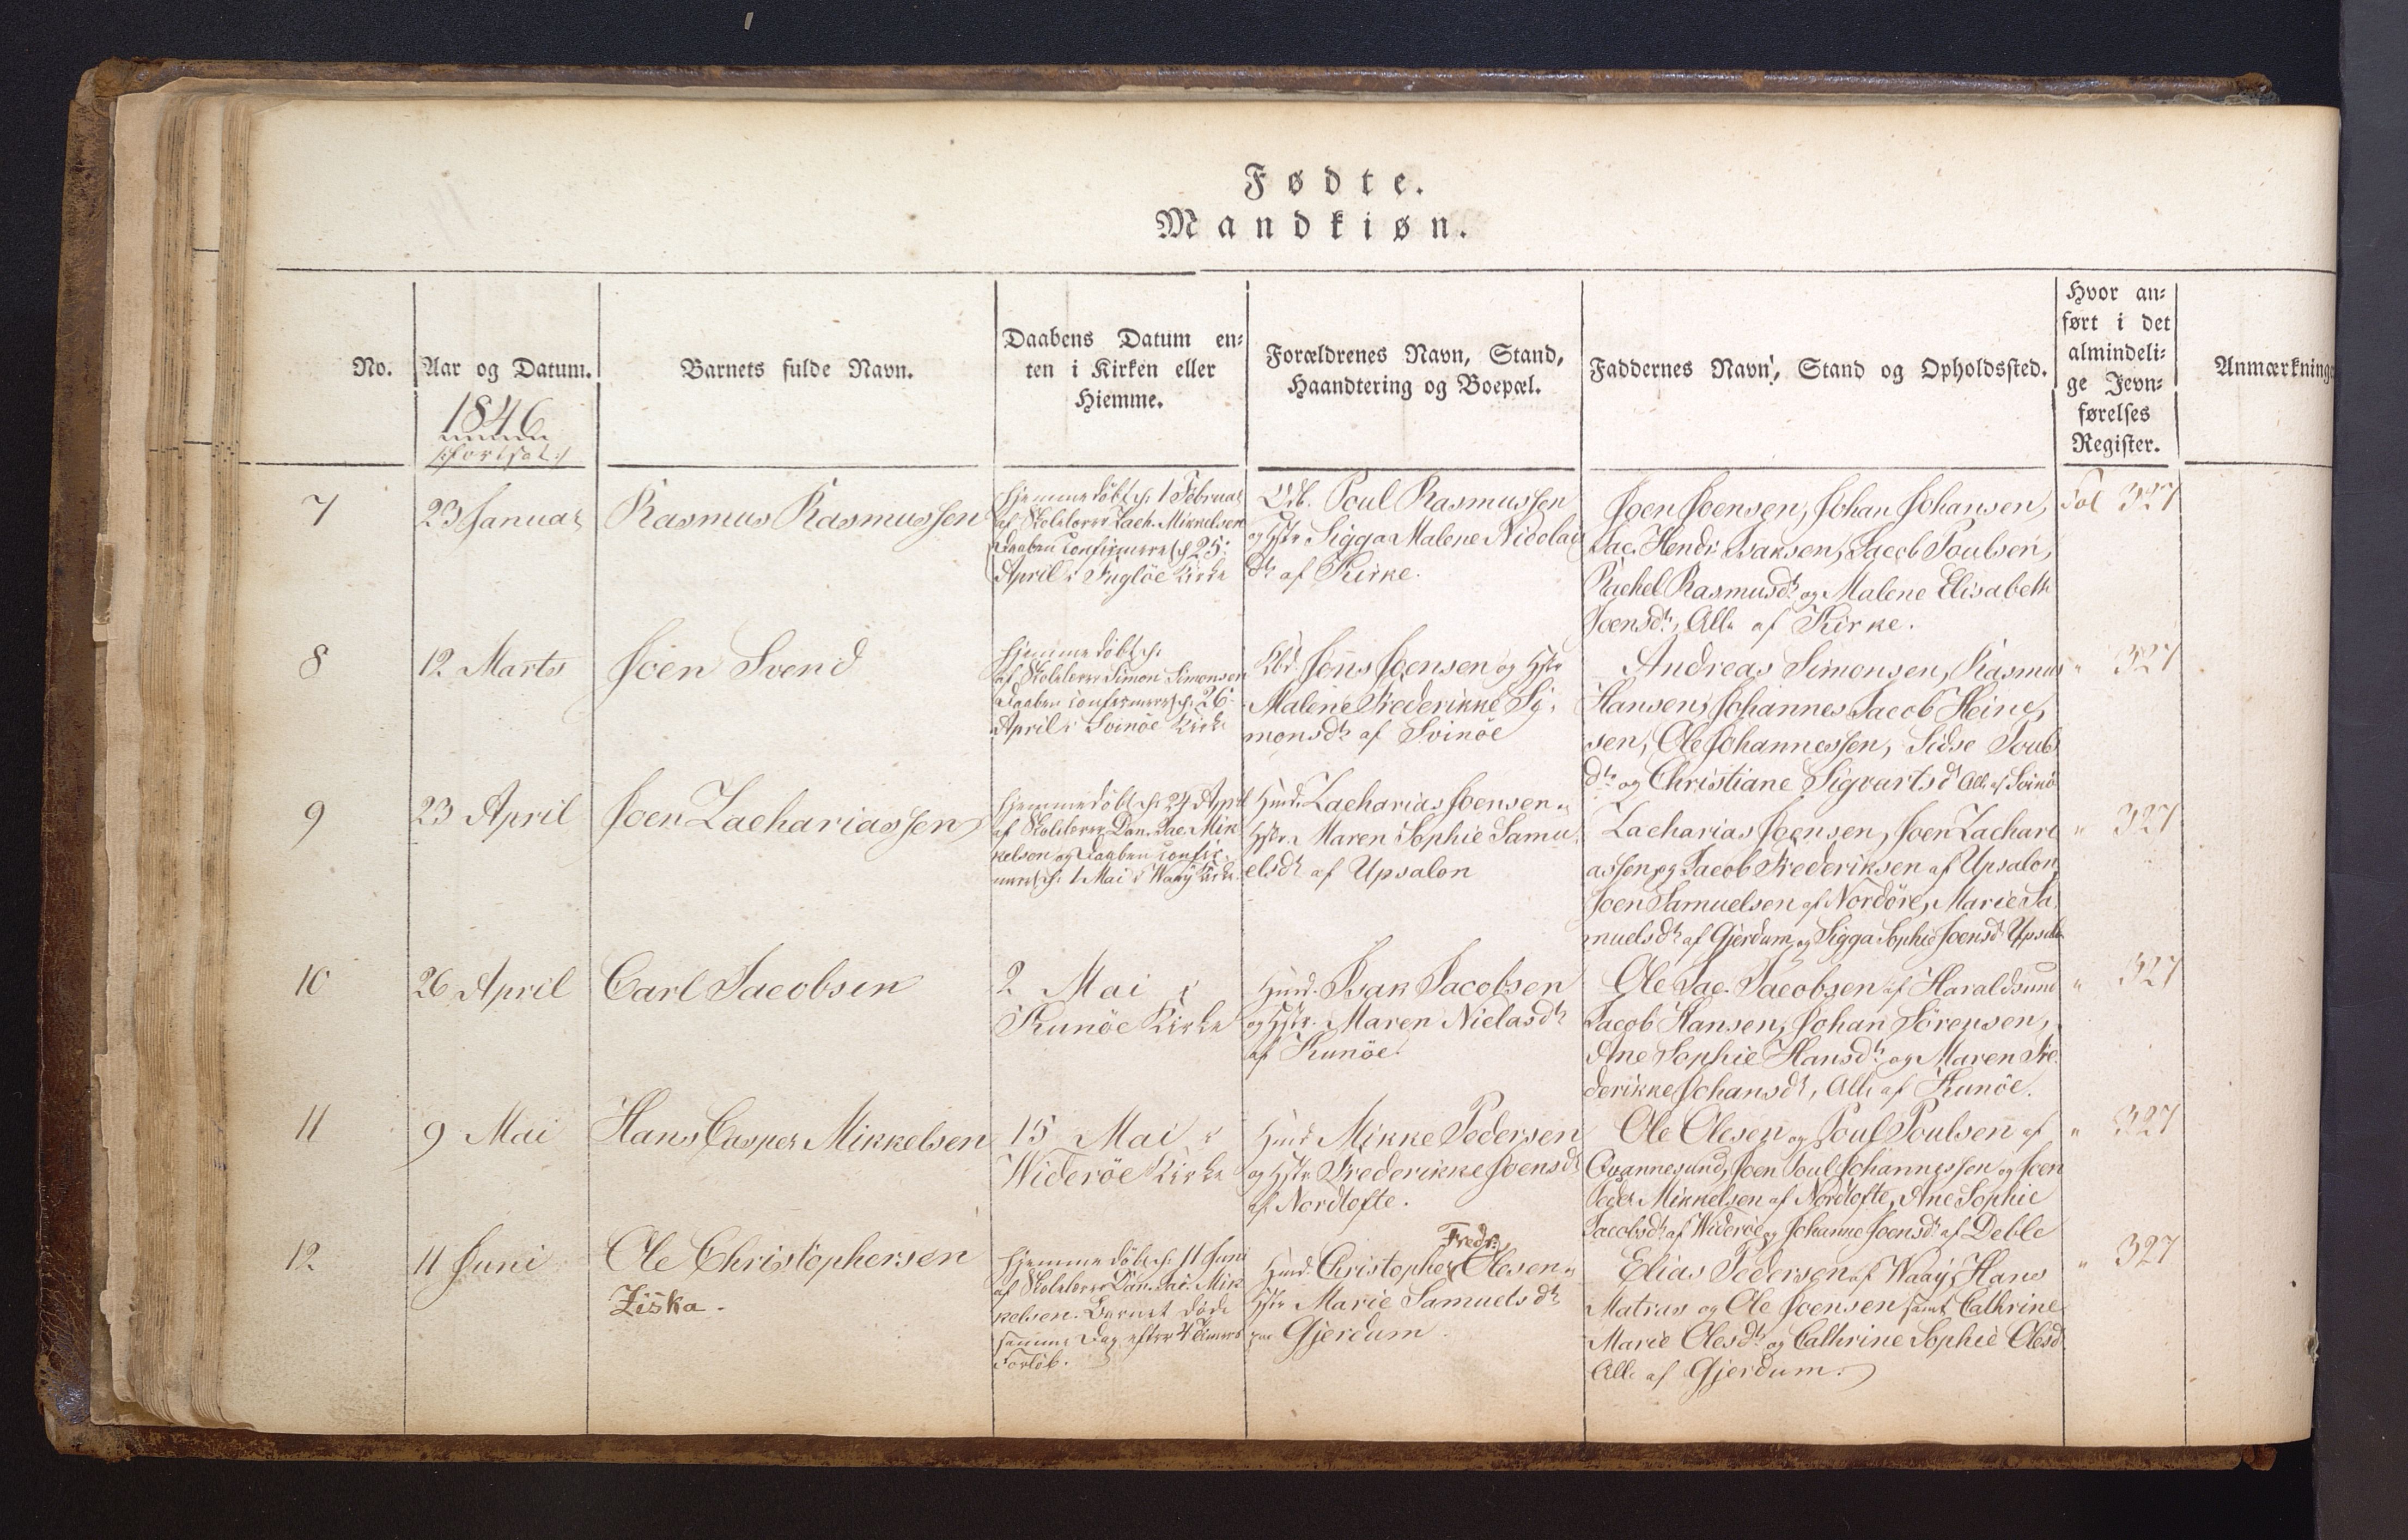 Fødte.
Mandkiøn.
No.
Aar og Datum.
1846
/:fortsat:/
Barnets fulde Navn.
Daabens Datum en-
ten i Kirken eller
Hiemme.
Forældrenes Navn, Stand,
Haandtering og Boepæl.
Faddernes Navn, Stand og Opholdssted.
Hvor an-
ført i det
almindeli-
ge Jevn-
førelses
Register.
Anmærkninge
7
23 Januar
Rasmus Rasmussen
Hjemmedöbt 1 Februar
af Skolelærer Zach. Mikkelsen
Daaben confirmeret 25
April i Fuglöe Kirke
Poul Rasmussen
og Sigga Malene Nicolai
dtr af Kirke.
Joen Joensen, Johan Johansen,
Jac. Hendr. Isaksen, Jacob Poulsen,
Rachel Rasmusdtr og Malene Elisabeth
Joensdtr, Alle af Kirke.
Fol 327
8
12 Marts
Joen Svend
Hjemmedöbt
af Skolelærer Simon Simonsen
Daaben confirmeret 26
April i Svinöe Kirke
Jens Joensen og
Malene Frederikke Sy-
monsdtr af Svinöe
Andreas Simonsen, Rasmus
Hansen, Johannes Jacob Heine-
sen, Ole Johannessen, Sidse Pouls
dtr og Christiane Sigvartsd Alle af Svinö
" 327
9
23 April
Joen Zachariassen
Hjemmedöbt 24 April
af Skolelærer Dan. Jac. Mik
kelsen og Daaben confir-
meret 1 Mai i Waaÿ Kirke.
Zacharias Joensen
Maren Sophie Samu-
elsdtr af Upsalon
Zacharias Joensen, Joen Zachari
assen og Jacob Frederiksen af Upsalon,
Joen Samuelsen af Nordöre, Marie Sa-
muelsdtr af Gjerdum og Sigga Sophie Joensd
" 327
10
26 April
Carl Jacobsen
2 Mai i
Kunöe Kirke
Isak Jacobsen
og Maren Nielasdtr
af Kunöe.
Ole Jac. Jacobsen af Haraldsund
Jacob Hansen, Johan Sörensen,
Ane Sophie Hansdtr og Maren Fre-
derikke Johansdt, Alle af Kunöe.
" 327
11
9 Mai
Hans Casper Mikkelsen
15 Mai i
Wideröe Kirke
Mikkel Pedersen
og Frederikke Joensdt
af Nordtofte.
Ole Olesen og Poul Poulsen af
Qvannesund, Joen Poul Johannessen og Joen
Peder Mikkelsen af Nordtofte, Ane Sophie
Jacobsdtr af Wideröe og Johanne Joensdt af Deble
" 327
12
11 Juni
Ole Christophersen
Ziska.
Hjemmedöbt 11 Juni
af Skolelærer Dan. Jac. Mik
kelsen. Barnet döde
samme Dag efter 4 Timers
Forlöb.
Fredr.
Christopher Olesen
Marie Samuelsdtr
paa Gjerdum.
Elias Pedersen af Waaÿ, Hans
Matras og Ole Joensen samt Cathrine
Marie Olesdtr og Cathrine Sophie Olesd
Alle af Gjerdum.
" 327